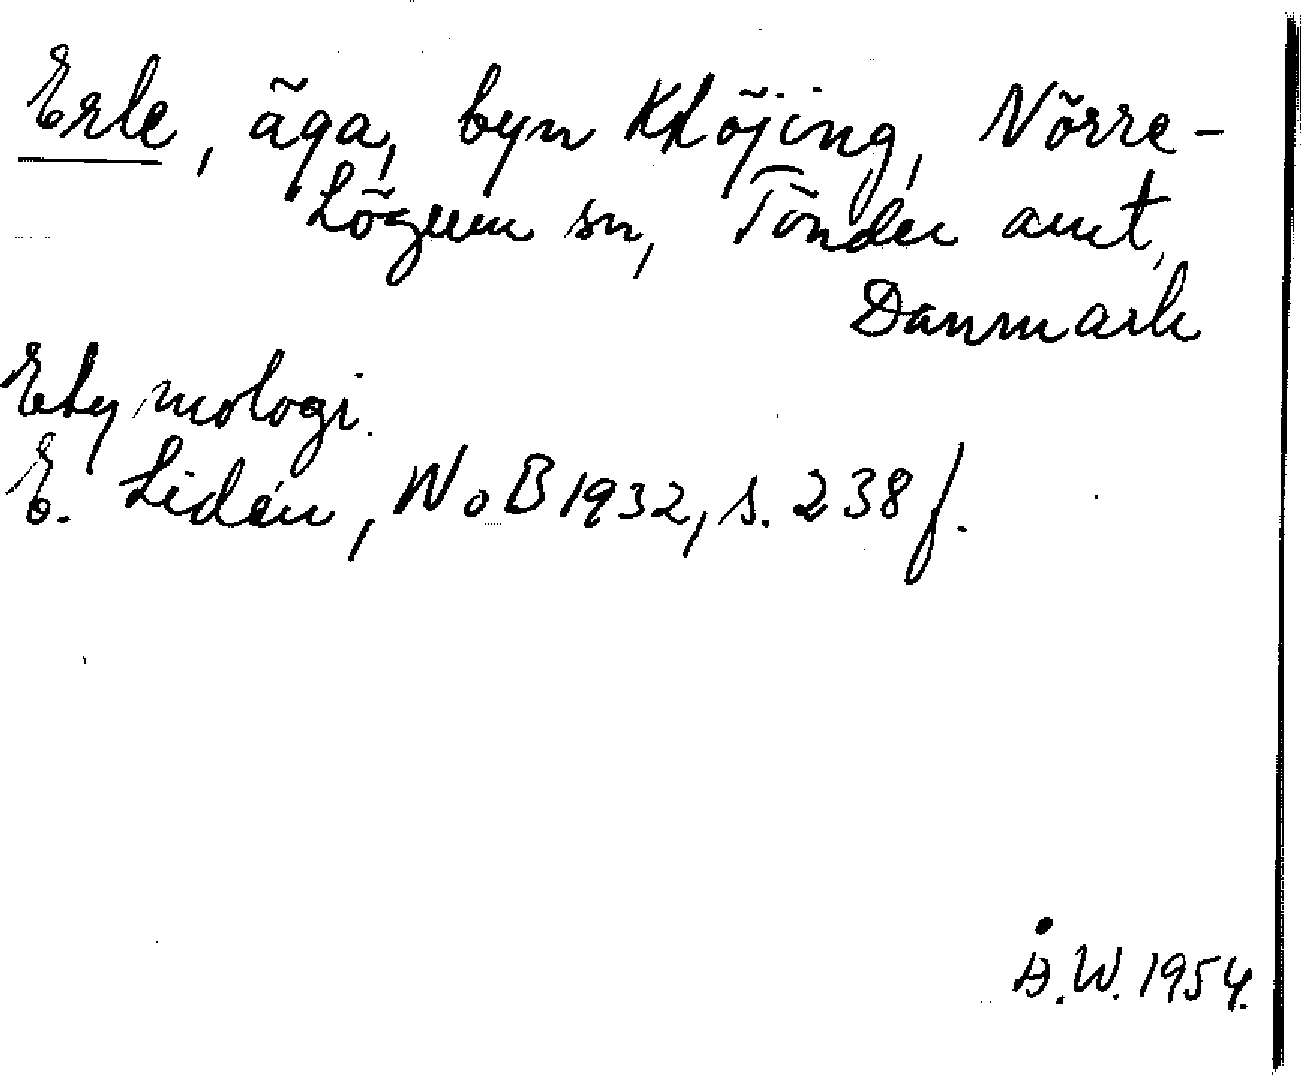 Erle, äga, byn Klöjing, Nörre-
Lögum sn, Tönder amt,
Danmark
Etymologi.
E. Lidén, NoB 1932, s. 238 f.
Å.W. 1954.